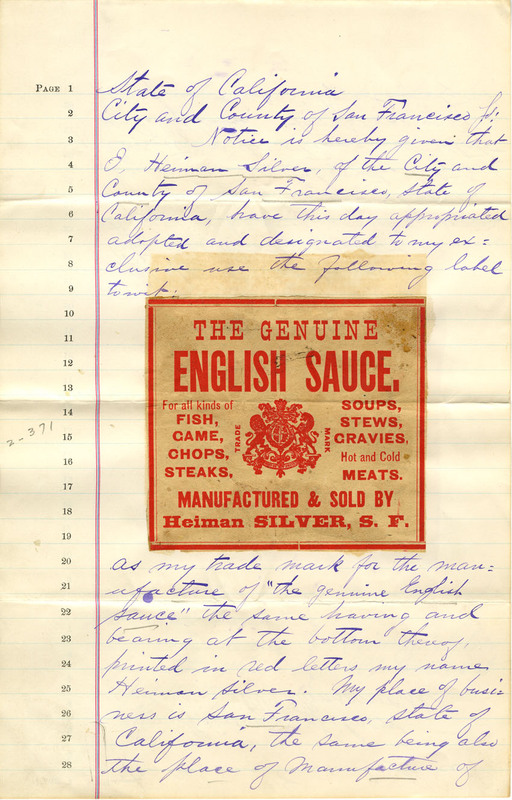 PAGE 1 State of California
2 City and County of San Francisco ss:
3 Notice is hereby given that
4 I, Heiman Silver, of the City and
5 County of San Francisco, State of
6 California, have this day appropriated
7 adopted and designated to my ex=
8 clusive use the following label
9 to wit:
10
11
12
13
14
15
16
17
18
19
THE GENUINE
ENGLISH SAUCE.
For all kinds of
FISH,
GAME,
CHOPS,
STEAKS,
TRADE
MARK
SOUPS,
STEWS,
GRAVIES,
Hot and Cold
MEATS.
MANUFACTURED & SOLD BY
Heiman SILVER, S. F.
2-371
20 as my trade mark for the man=
21 ufacture of "the genuine English
22 sauce" the same having and
23 bearing at the bottom thereof,
24 printed in red letters my name
25 Heiman Silver. My place of busi=
26 ness is San Francisco, State of
27 California, the same being also
28 the place of manufacture of